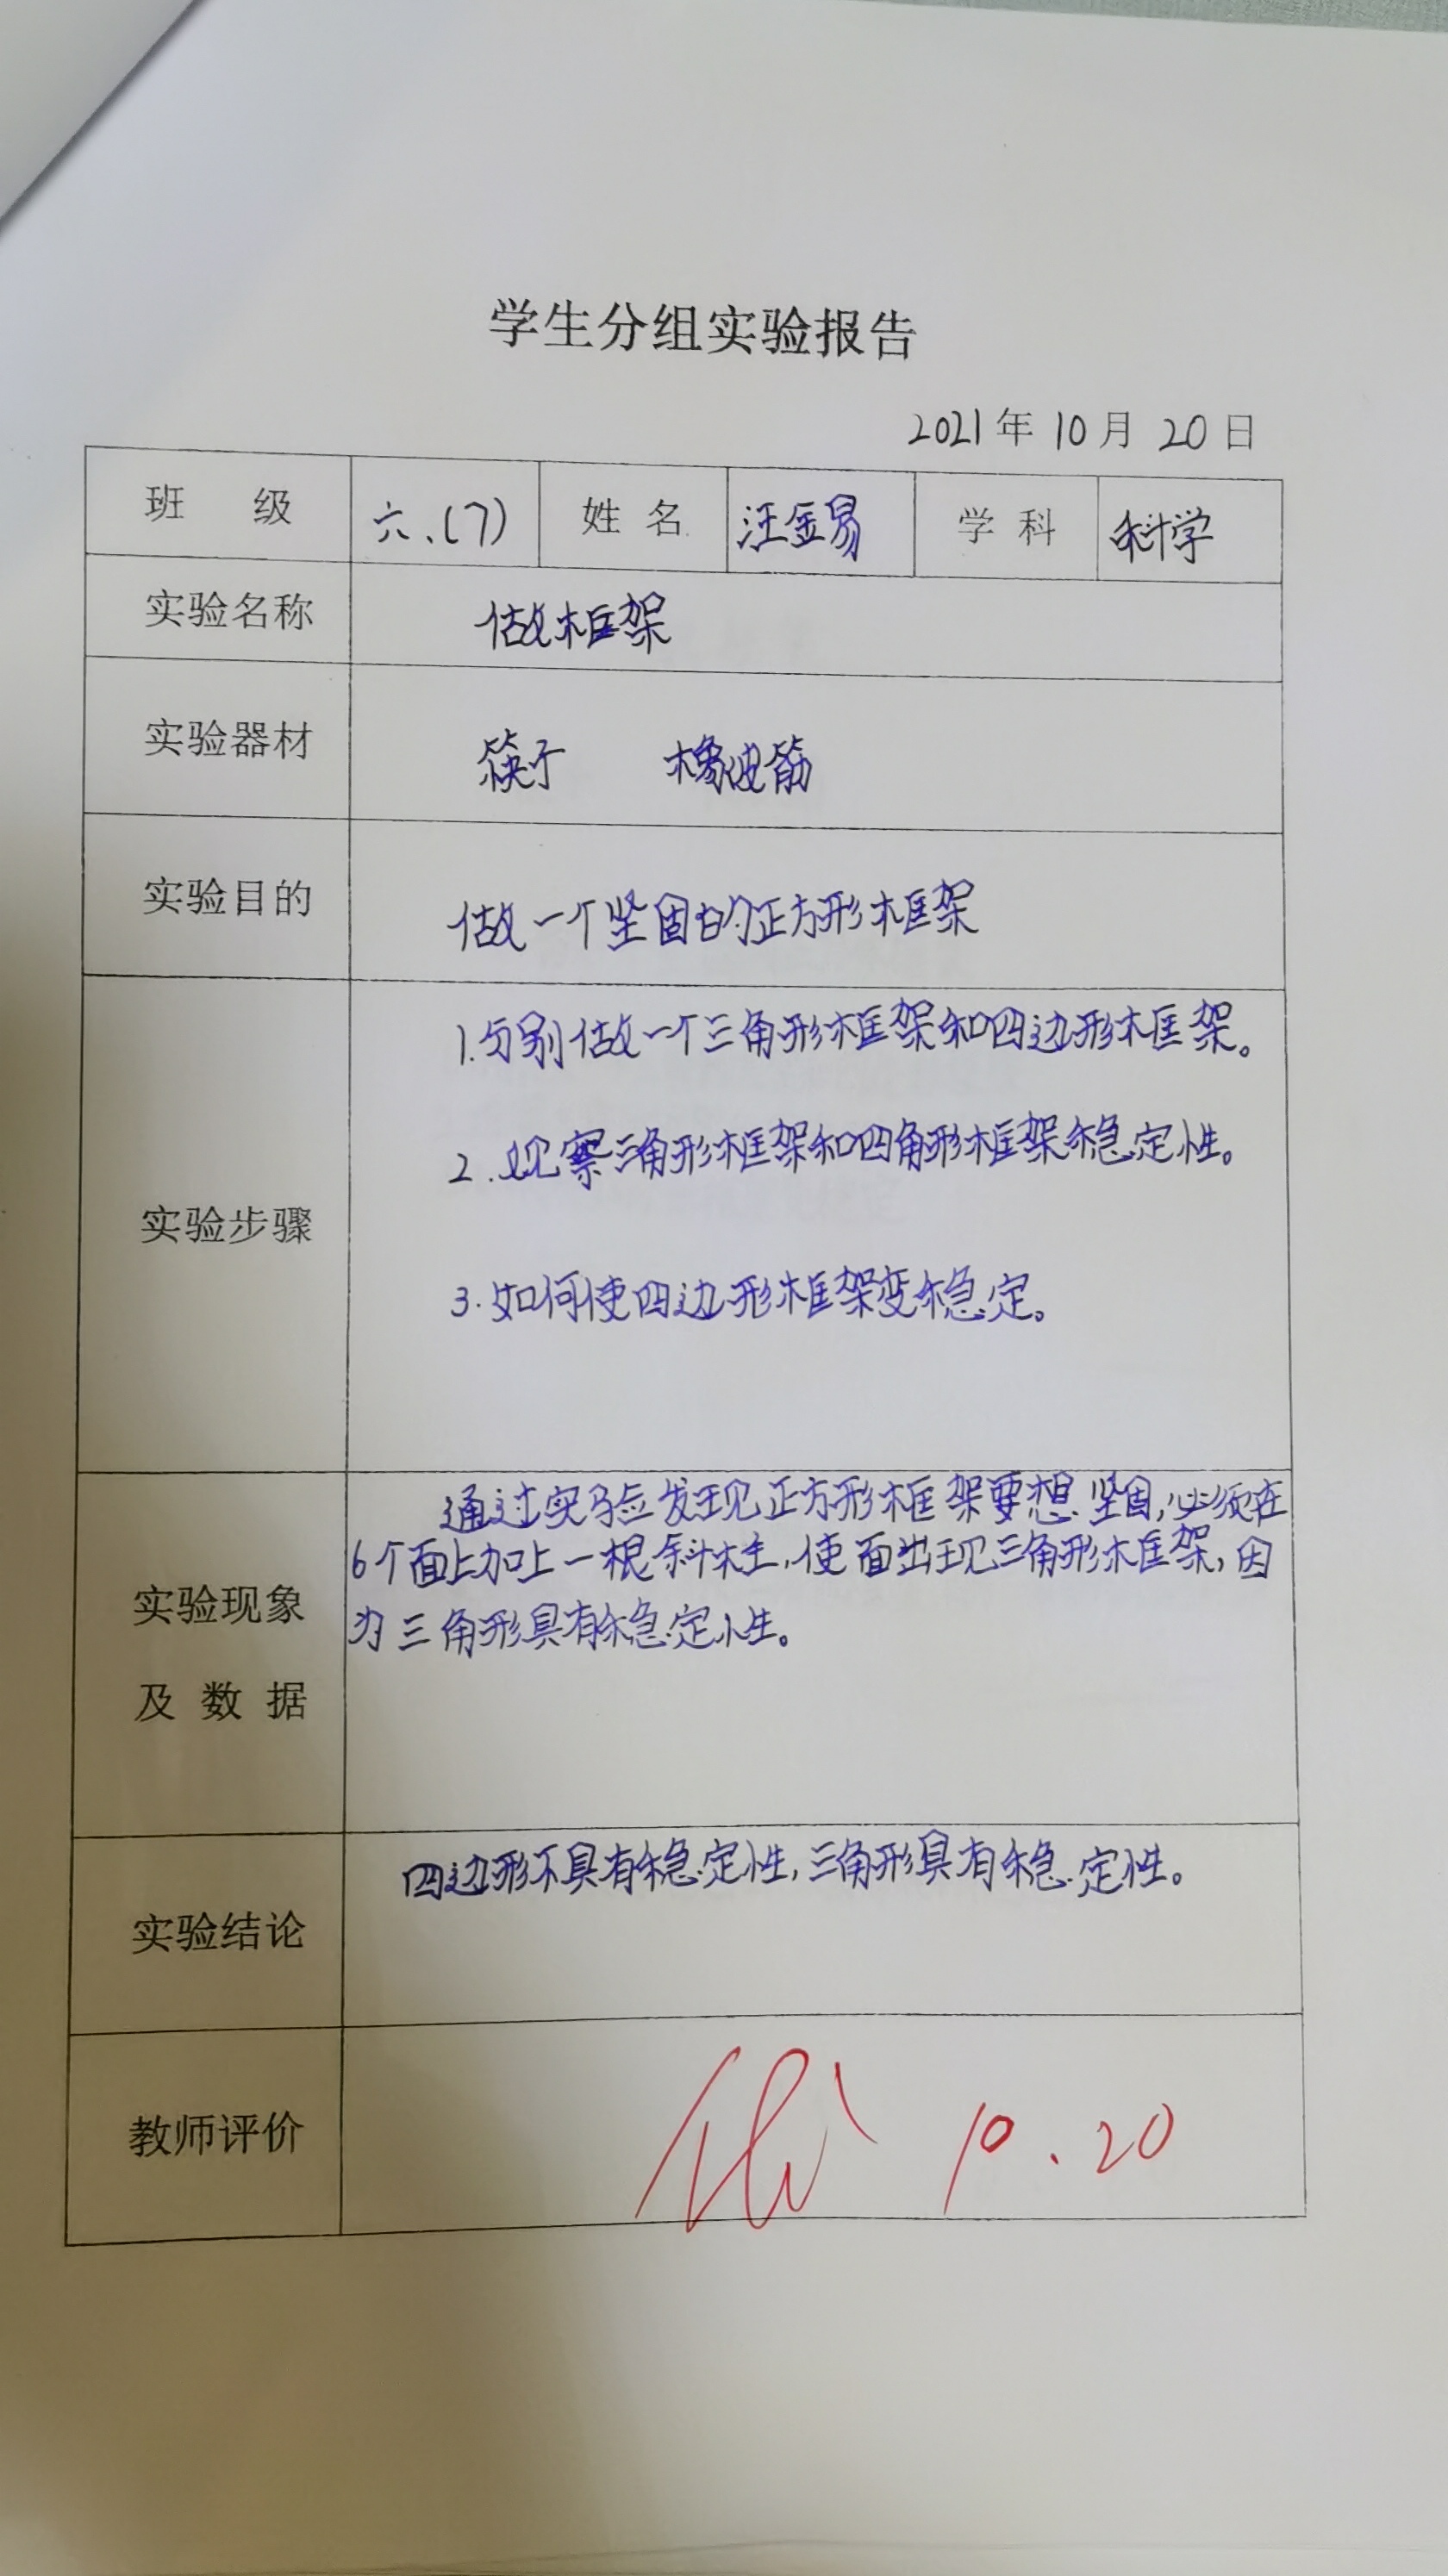 学生分组实验报告
2021年10月20日
班 级 六.(7) 姓名 汪金易 学科 科学
实验名称 做框架
实验器材 筷子 橡皮筋
实验目的 做一个坚固的正方形框架
1.分别做一个三角形框架和四边形框架。
2.观察三角形框架和四角形框架稳定性。
实验步骤
3.如何使四边形框架变稳定。
通过实验发现正方形框架要想坚固,必须在
6个面上加上一根斜柱,使面出现三角形框架,因
为三角形具有稳定性。
实验现象
及数据
四边形不具有稳定性,三角形具有稳定性。
实验结论
教师评价 10.20